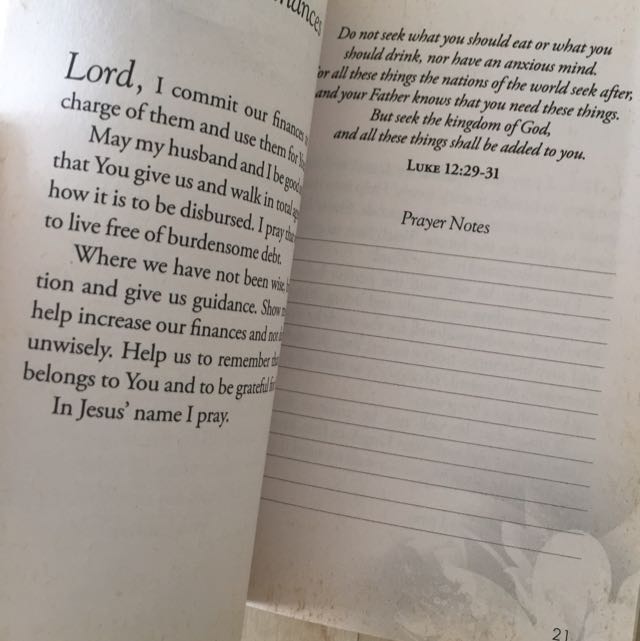 Lord, I commit our finances
charge of them and use them for
May my husband and I be good
that You give us and walk in total
how it is to be disbursed. I pray
to live free of burdensome debt.
Where we have not been wise,
tion and give us guidance. Show
help increase our finances and not
unwisely. Help us to remember
belongs to You and to be grateful
In Jesus’ name I pray.
Do not seek what you should eat or what you
should drink, nor have an anxious mind.
for all these things the nations of the world seek after,
and your Father knows that you need these things.
But seek the kingdom of God,
and all these things shall be added to you.
LUKE 12:29-31
Prayer Notes
21